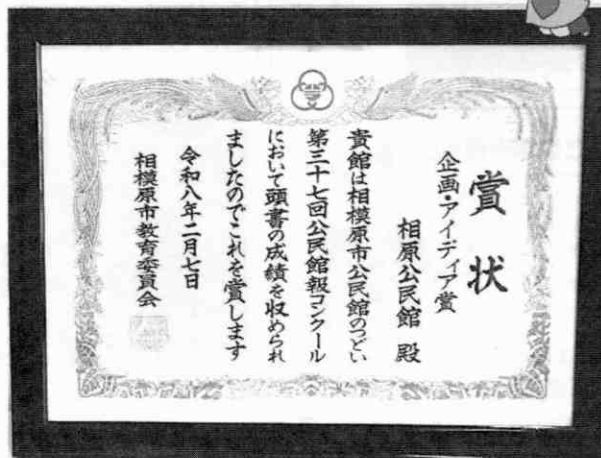 賞状
企画・アイディア賞
相原公民館 殿
貴館は相模原市公民館のつどい
第三十七回公民館報コンクール
において頭書の成績を収められ
ましたのでこれを賞します
令和八年二月七日
相模原市教育委員会